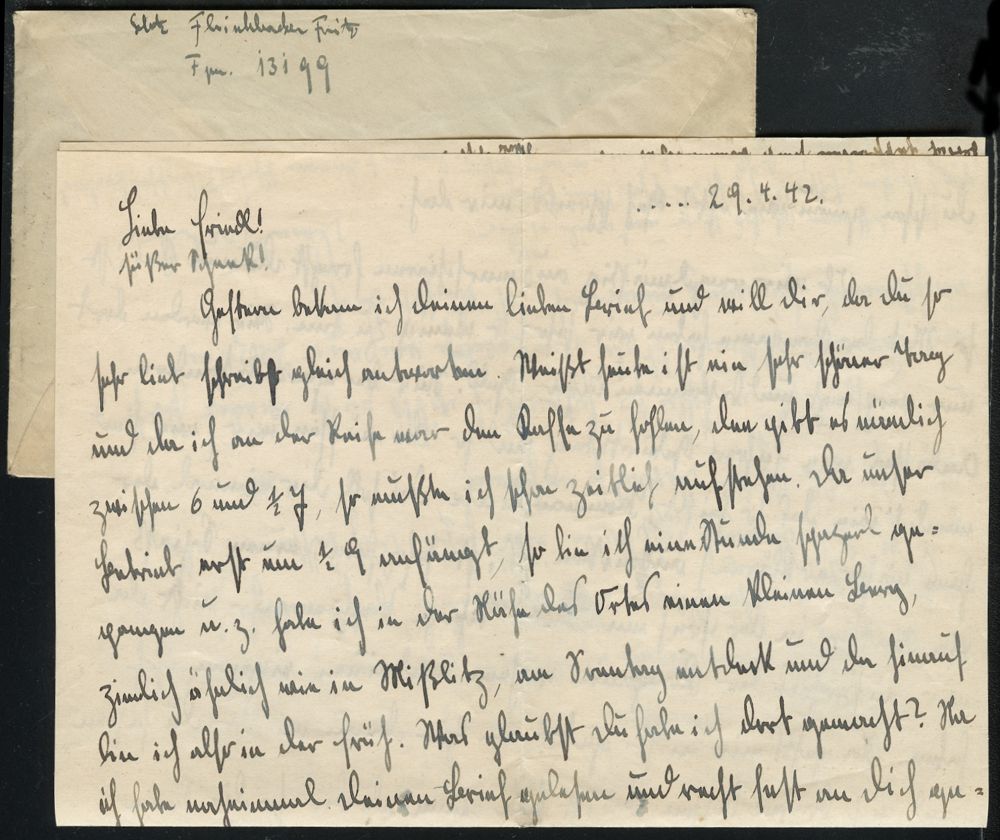 Fritz
Fpn. 13199
..... 29.4.42.
Liebe Friedl!
süßer Schnek!
Gestern bekam ich deinen lieben Brief und will dir, da du so
sehr lieb schreibst gleich antworten. Weißt heute ist ein sehr schöner Tag
und da ich an der Reihe war den Kaffe zu hohlen, den gibt es nämlich
zwischen 6 und ½ 7, so mußte ich schon zeitlich aufstehen. Da unser
Betrieb erst um ½ 9 anfängt, so bin ich eine Stunde spazieren ge=
gangen u. z. habe ich in der Nähe des Ortes einen kleinen Berg,
ziemlich ähnlich wie in Mißlitz, am Sonntag entdeckt und da hinauf
bin ich also in der früh. Was glaubst du habe ich dort gemacht? Na
ich habe nocheinmal deinen Brief gelesen und recht fest an dich ge=